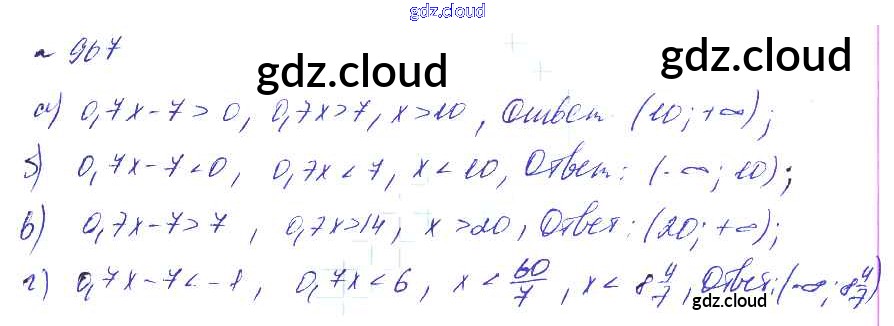 gdz.cloud
№ 967
gdz.cloud gdz.cloud
а) 0,7x-7>0, 0,7x>7, x>10, Ответ (10; +∞);
б) 0,7x-7<0, 0,7x<7, x<10, Ответ: (-∞; 10);
в) 0,7x-7>7, 0,7x>14, x>20, Ответ: (20; +∞);
г) 0,7x-7<-1, 0,7x<6, x<60/7, x<8 4/7, Ответ: (-∞; 8 4/7)
gdz.cloud